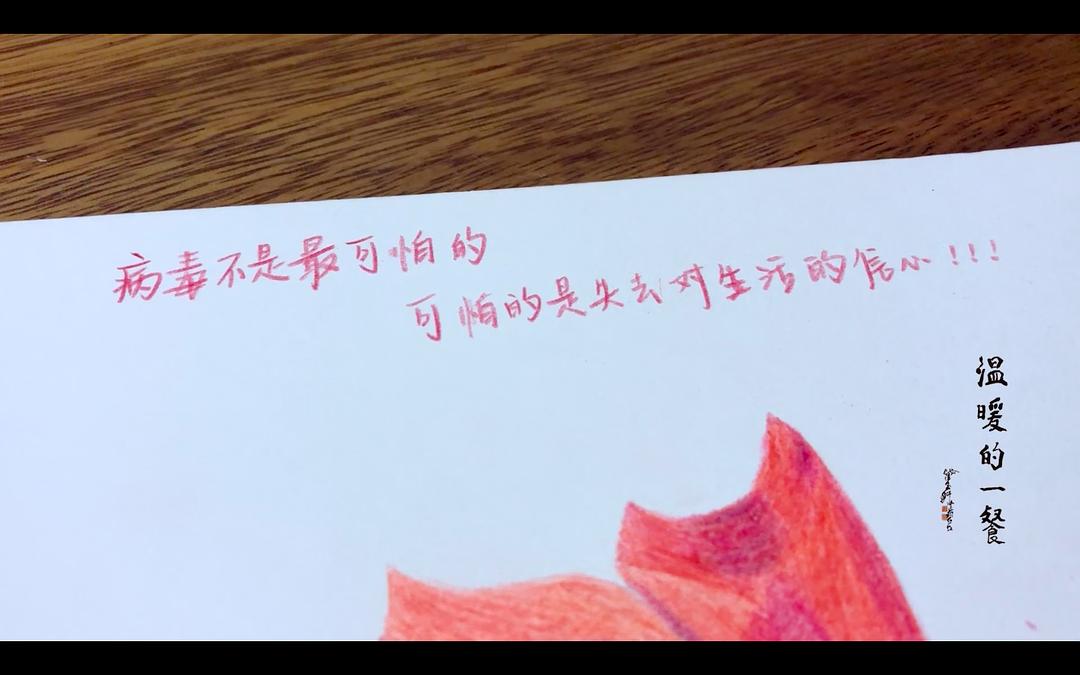 病毒不是最可怕的
可怕的是失去对生活的信心!!!
温暖的一餐